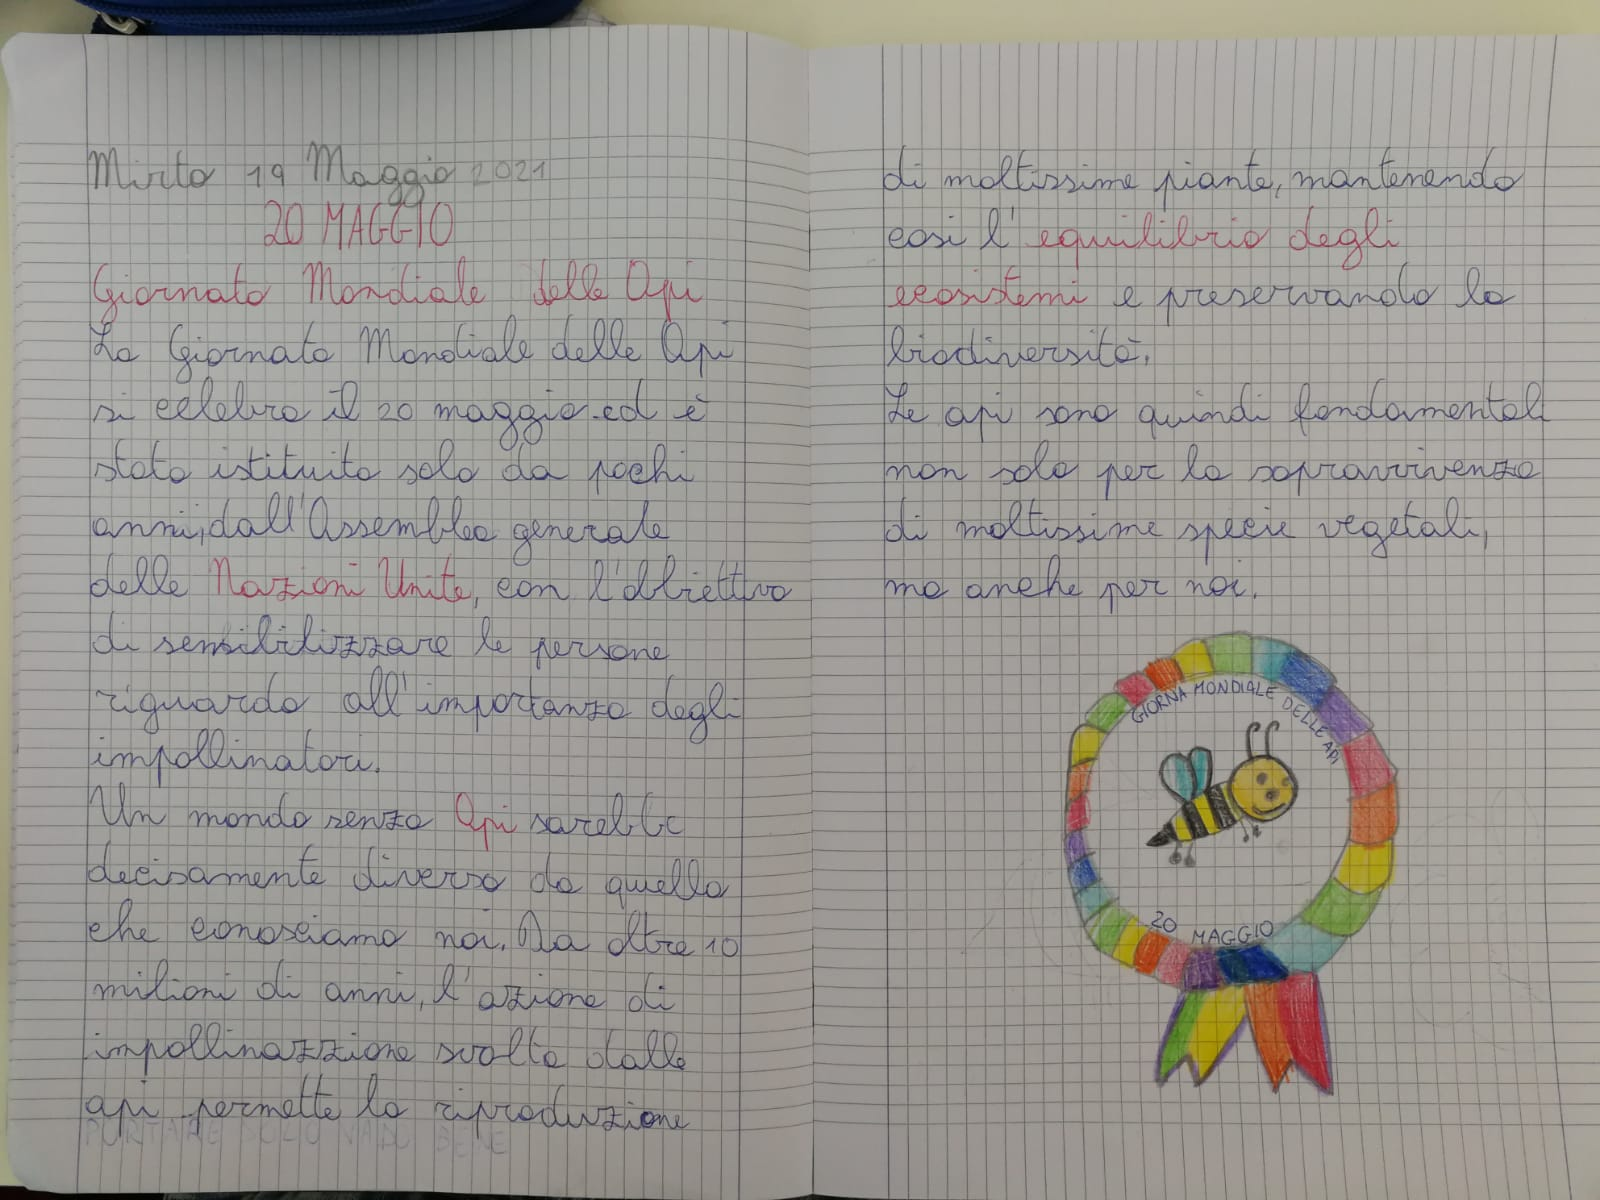 Mirto 19 Maggio 2021
20 MAGGIO
Giornata Mondiale delle Api
La Giornata Mondiale delle Api
si celebra il 20 maggio ed è
stata istituita solo da pochi
anni, dall'Assemblea generale
delle Nazioni Unite, con l'obiettivo
di sensibilizzare le persone
riguardo all'importanza degli
impollinatori.
Un mondo senza Api sarebbe
decisamente diverso da quello
che conosciamo noi. Da oltre 10
milioni di anni, l'azione di
impollinazzione svolta dalle
api permette la riproduzione
di moltissime piante, mantenendo
così l'equilibrio degli
ecosistemi e preservando la
biodiversità.
Le api sono quindi fondamentali
non solo per la sopravvivenza
di moltissime specie vegetali,
ma anche per noi.
GIORNA MONDIALE DELLE API
20 MAGGIO